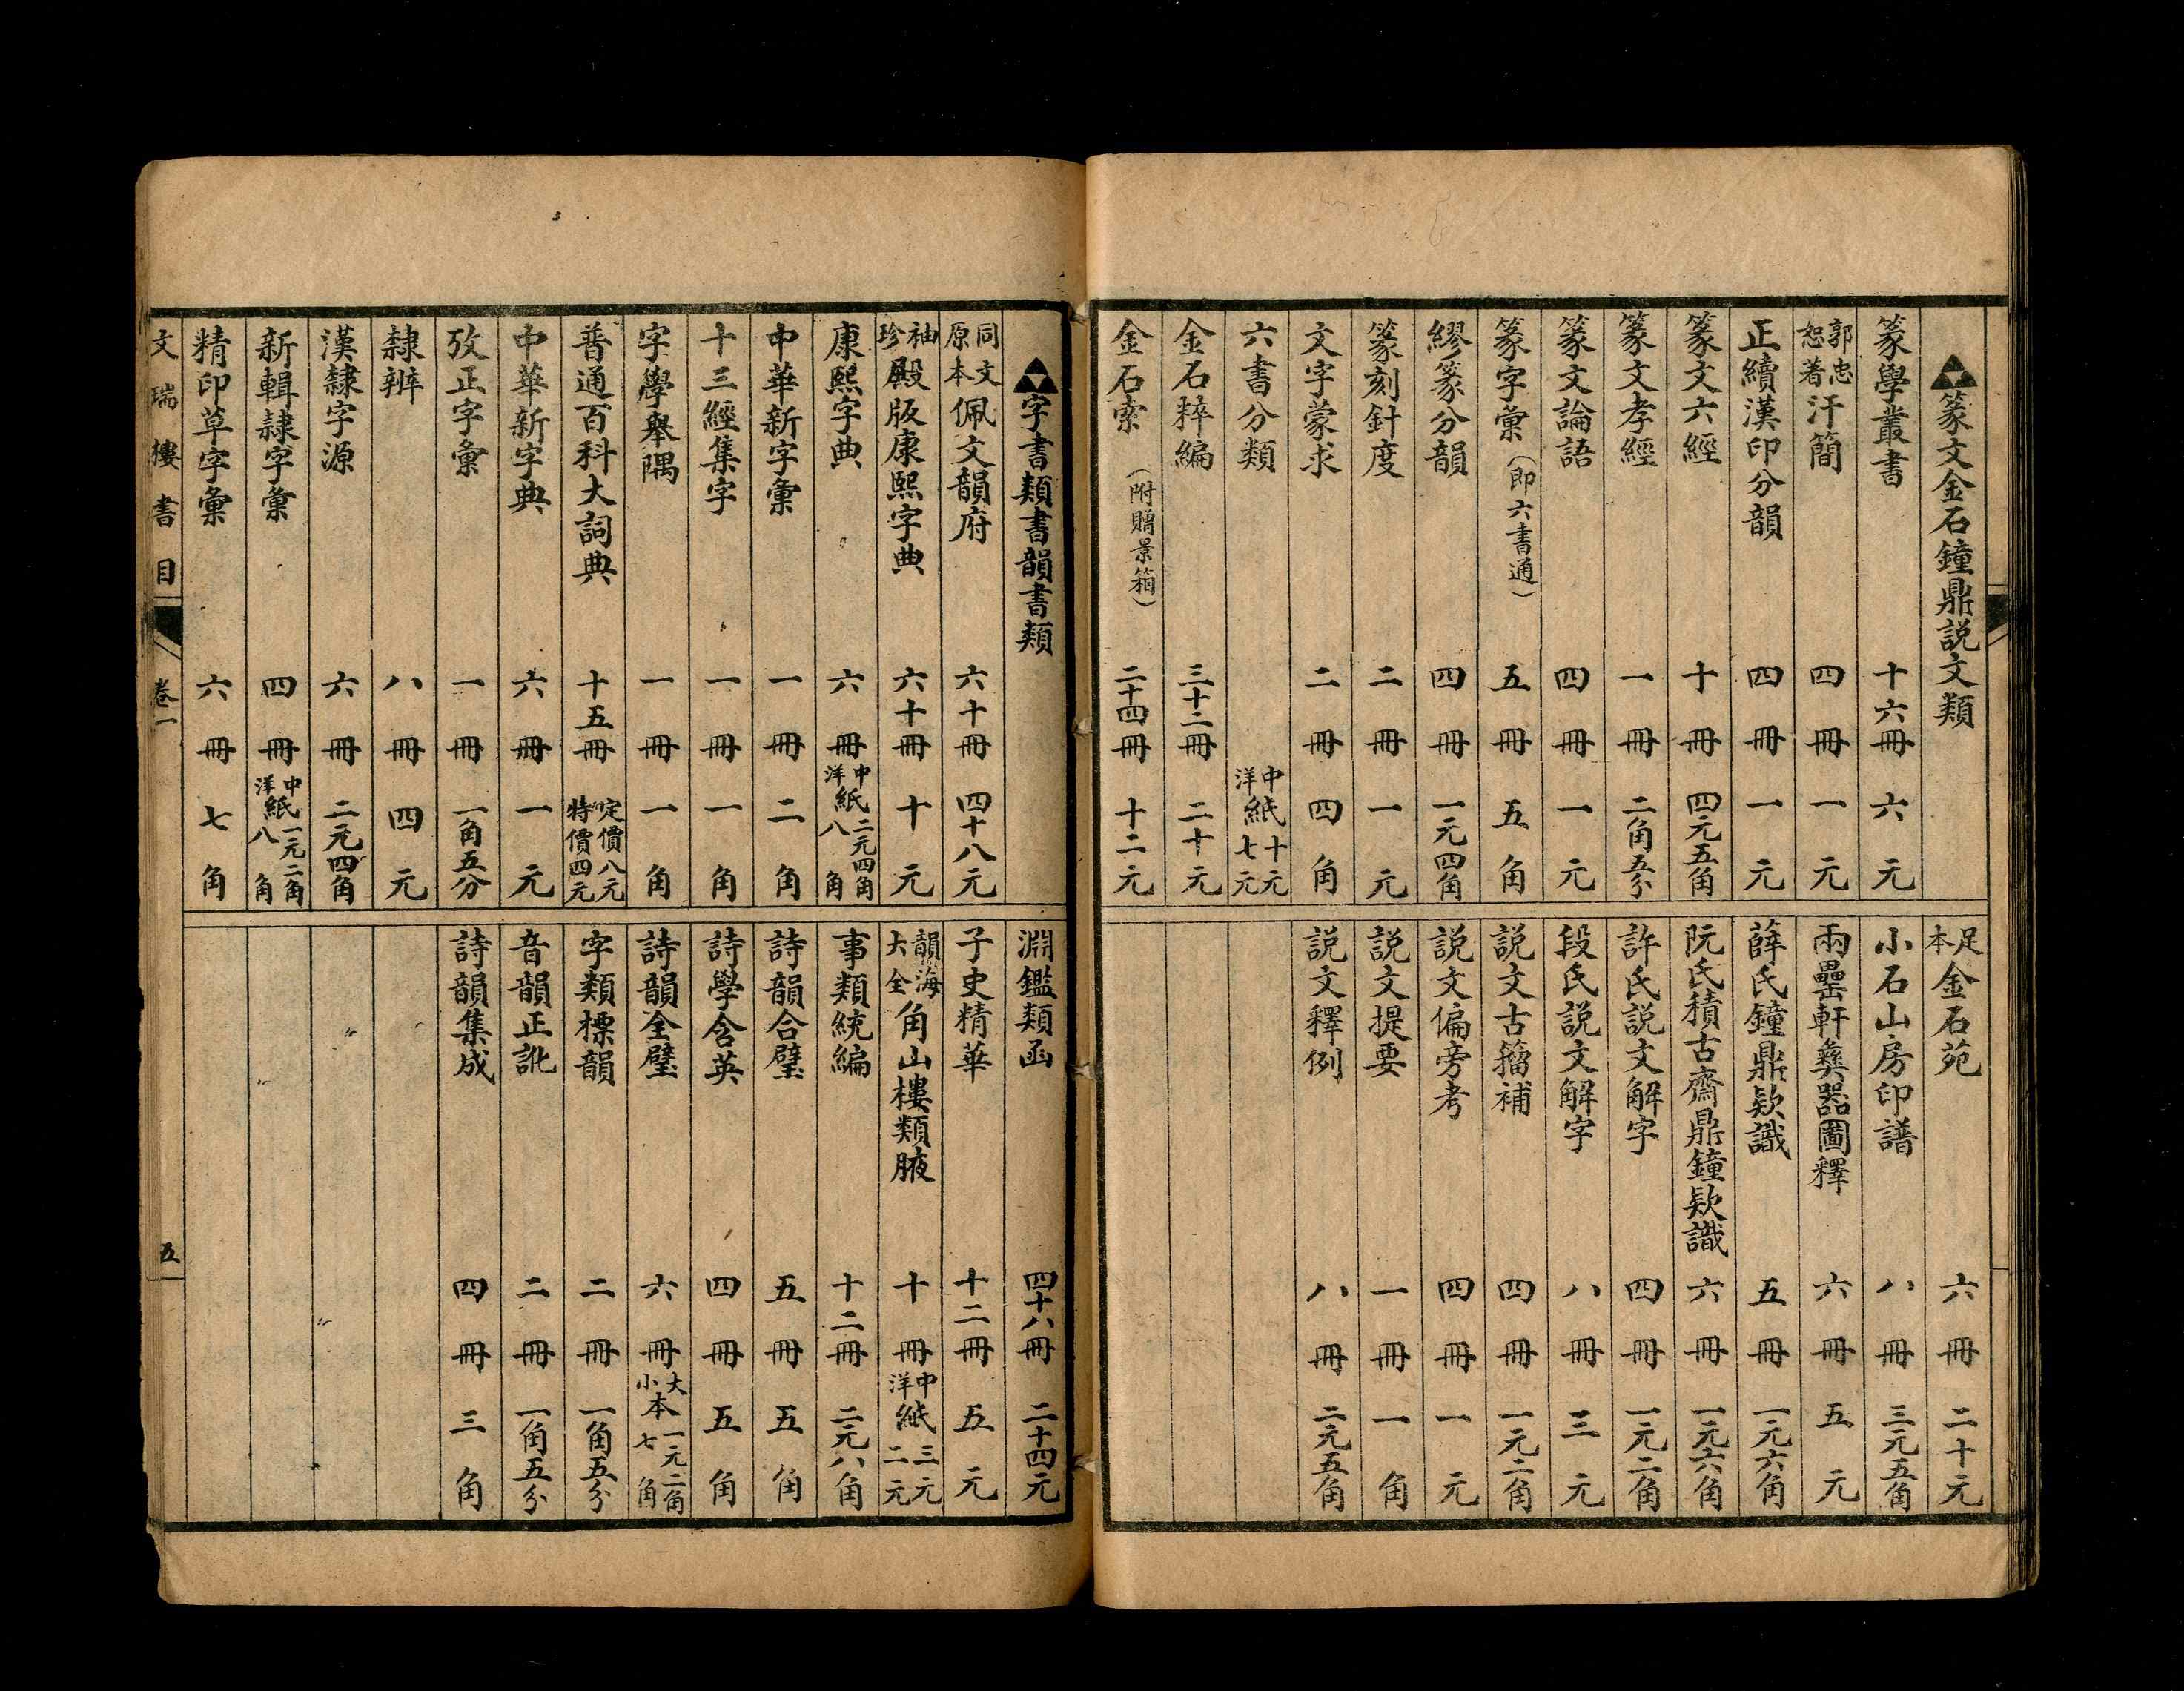 篆文金石鐘鼎説文類
篆學叢書 十六冊 六元
郭忠恕著汗簡 四冊 一元
正續漢印分韻 四冊 一元
篆文六經 十冊 四元五角
篆文孝經 一冊 二角五分
篆文論語 四冊 一元
篆字彙（即六書通） 五冊 五角
繆篆分韻 四冊 一元四角
篆刻針度 二冊 一元
文字蒙求 二冊 四角
六書分類 中洋紙 十元 七元
金石粹編 三十二冊 二十元
金石索（附贈景箱） 二十四冊 十二元
足本金石苑 六冊 二十元
小石山房印譜 八冊 三元五角
兩罍軒彝器圖釋 六冊 五元
薛氏鐘鼎欵識 五冊 一元六角
阮氏積古齋鼎鐘欵識 六冊 一元六角
許氏説文解字 四冊 一元二角
段氏説文解字 八冊 三元
説文古籀補 四冊 一元二角
説文偏旁考 四冊 一元
説文提要 一冊 一角
説文釋例 八冊 二元五角
字書類書韻書類
同文原本佩文韻府 六十冊 四十八元
袖珍殿版康熙字典 六十冊 十元
康熙字典 六冊 中洋紙 二元四角 八角
中華新字彙 一冊 二角
十三經集字 一冊 一角
字學舉隅 一冊 一角
普通百科大詞典 十五冊 定價八元 特價四元
中華新字典 六冊 一元
攷正字彙 一冊 一角五分
隸辨 八冊 四元
漢隸字源 六冊 二元四角
新輯隸字彙 四冊 中洋紙 一元二角 八角
精印草字彙 六冊 七角
淵鑑類函 四十八冊 二十四元
子史精華 十二冊 五元
韻海大全角山樓類腋 十冊 中洋紙 三元 二元
事類統編 十二冊 二元六角
詩韻合璧 五冊 五角
詩學含英 四冊 五角
詩韻全璧 六冊 大小本 一元二角 七角
字類標韻 二冊 一角五分
音韻正訛 二冊 一角五分
詩韻集成 四冊 三角
文瑞樓書目 卷一 五